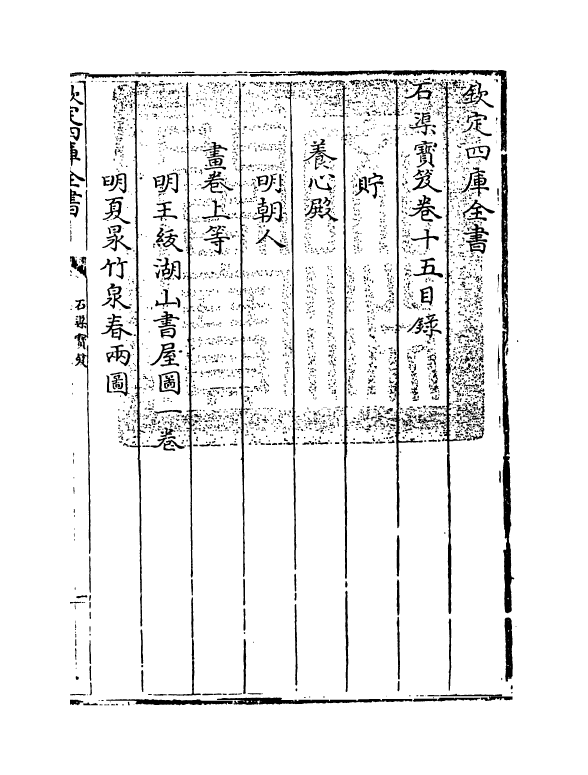 欽定四庫全書
石渠寶笈卷十五目錄
貯
養心殿
明朝人
畫卷上等
明王紱湖山書屋圖一卷
明夏㫤竹泉春雨圖
欽定四庫全書
石渠寶笈